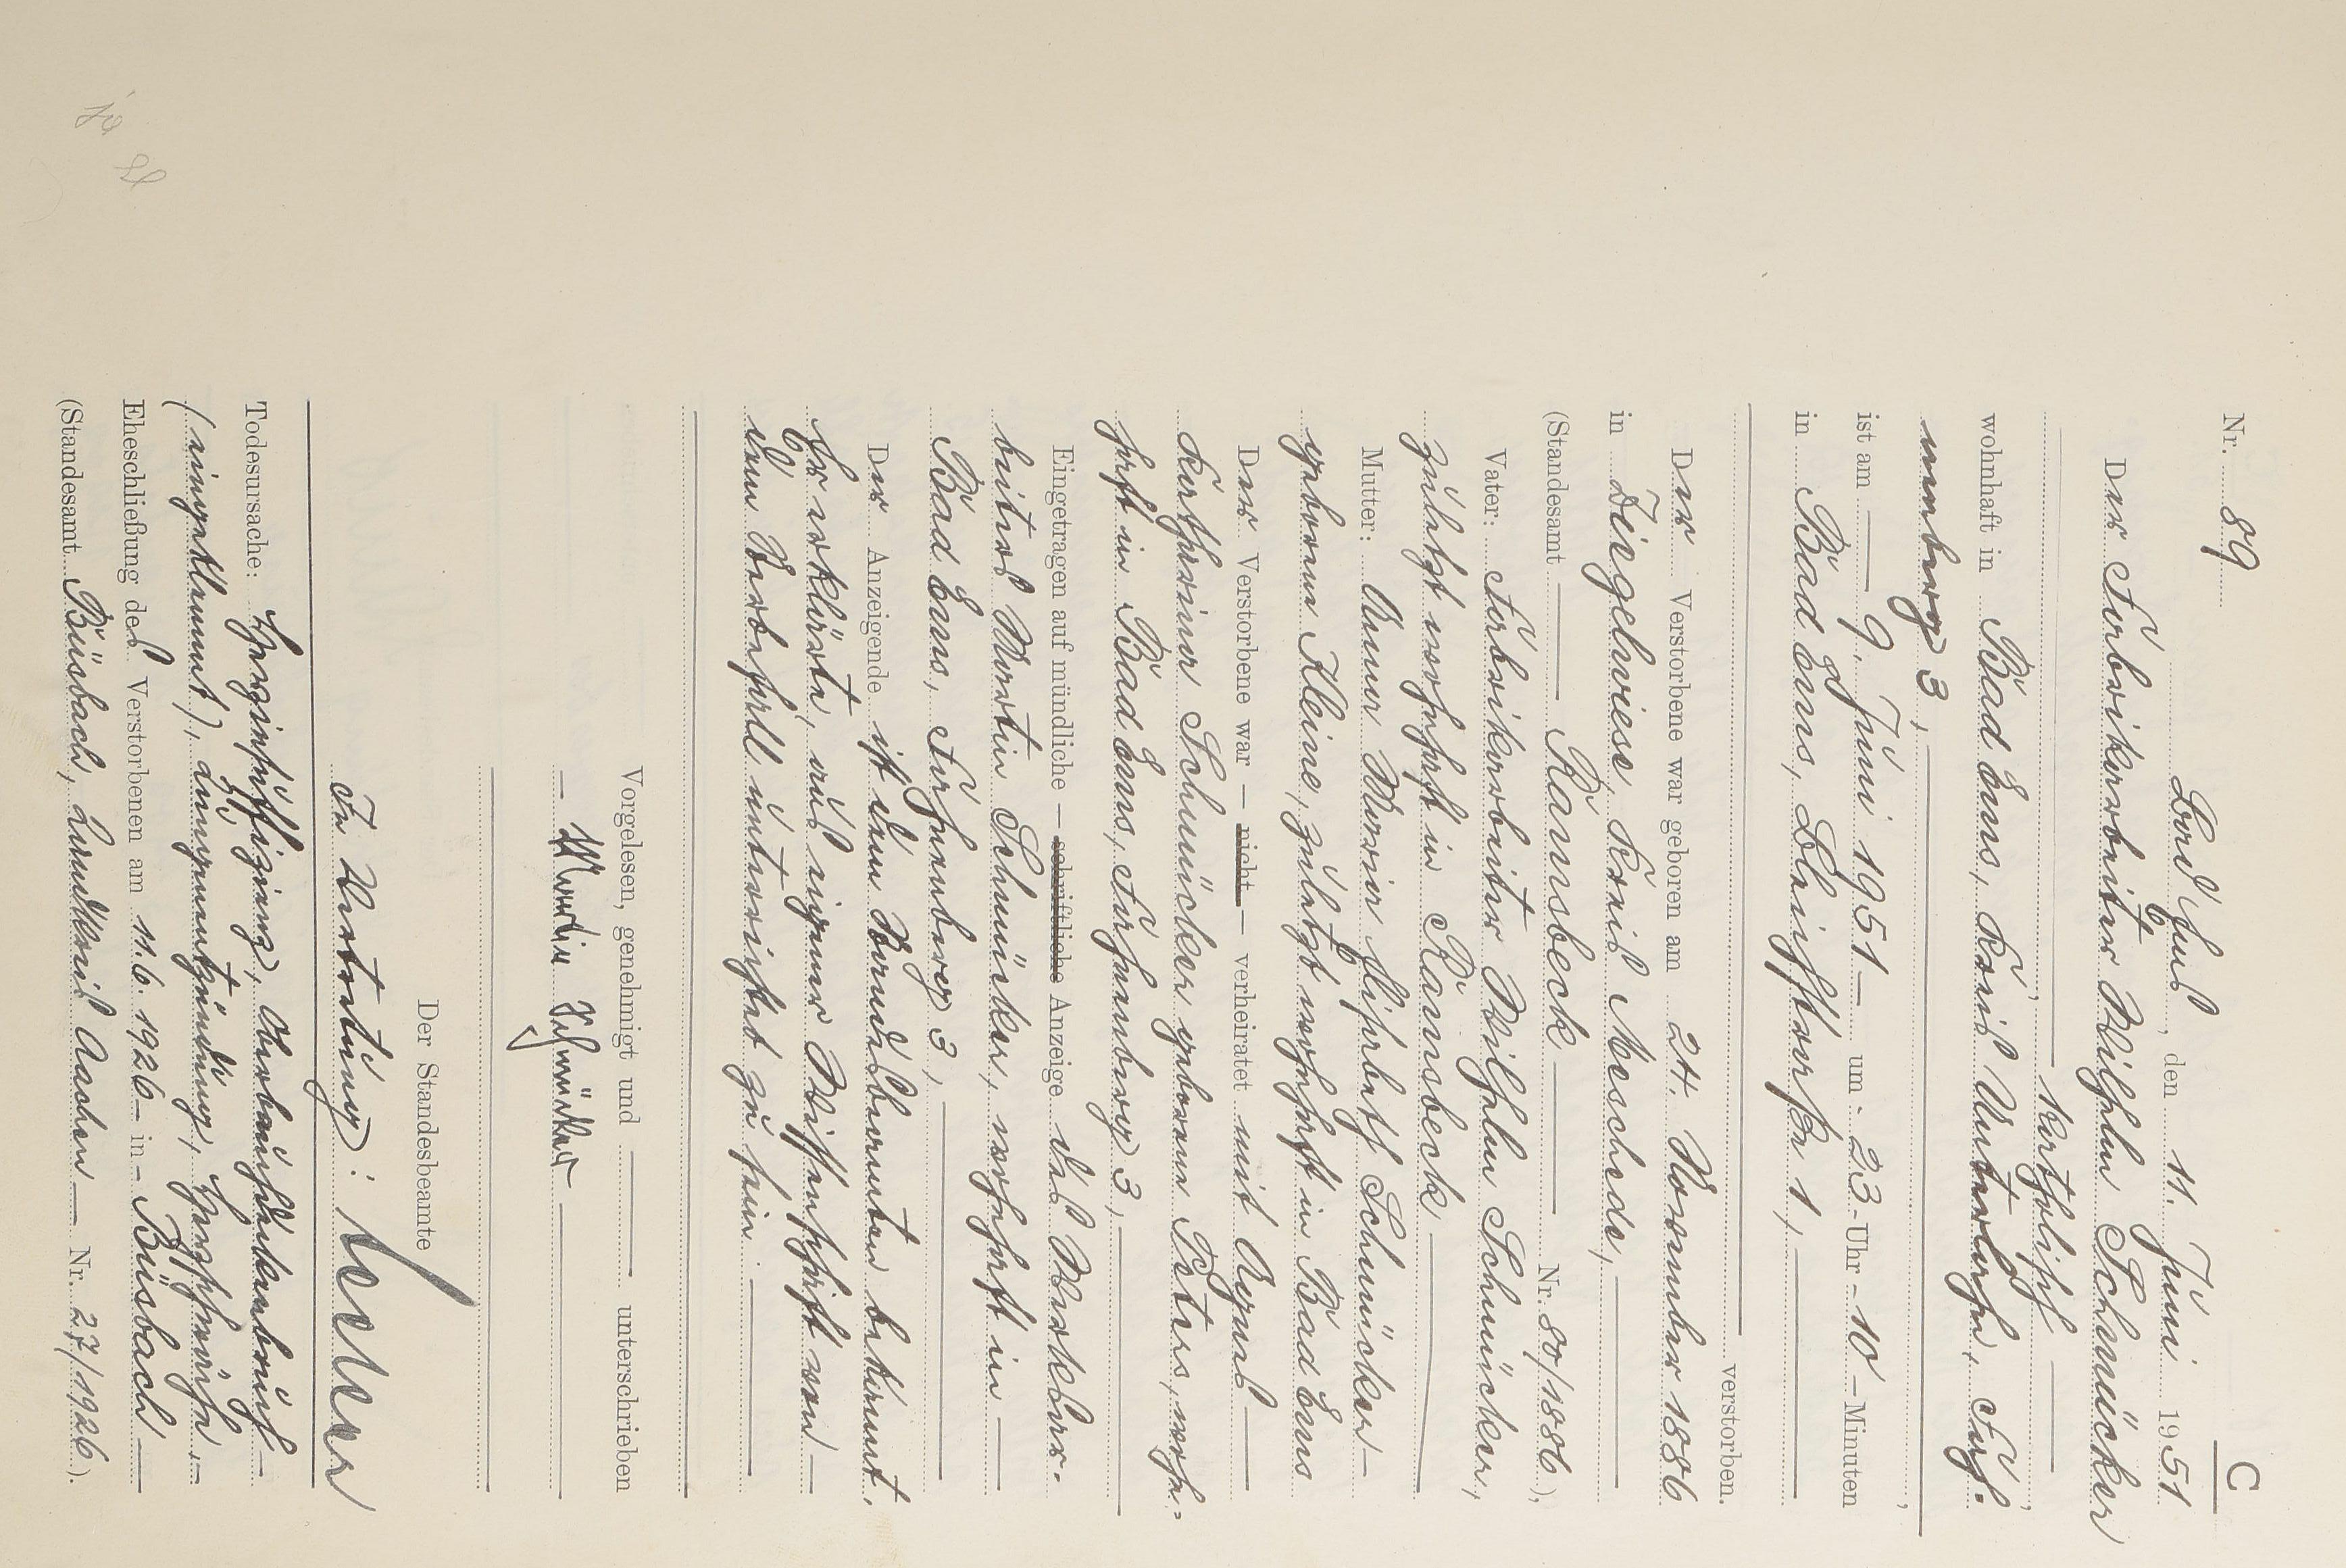 C
Nr. 89
Bad Ems, den 11. Juni 1951
Der Fabrikarbeiter Wilhelm Schmücker
katholisch,
wohnhaft in Bad Ems, Kreis Unterlahn, Fah-
nenberg 3,
ist am 9. Juni 1951 um 23 Uhr 10 Minuten
in Bad Ems, Bleichstraße 1,
verstorben.
Der Verstorbene war geboren am 24. November 1886
in Ziegelwiese, Kreis Meschede,
(Standesamt Ramsbeck Nr. 80/1886).
Vater: Fabrikarbeiter Wilhelm Schmücker,
zuletzt wohnhaft in Ramsbeck
Mutter: Anna Maria Elisabeth Schmücker
geborene Kleine, zuletzt wohnhaft in Bad Ems
Der Verstorbene war — nicht — verheiratet mit Agnes
Katharina Schmücker geborene Peters, wohn-
haft in Bad Ems, Fahnenberg 3,
Eingetragen auf mündliche — schriftliche Anzeige des Werkbar-
beiters Martin Schmücker, wohnhaft in
Bad Ems, Fahnenberg 3,
Der Anzeigende ist dem Standesbeamten bekannt.
Er erklärte, aus eigener Wissenschaft von
dem Sterbefall unterrichtet zu sein.
Vorgelesen, genehmigt und unterschrieben
Martin Schmücker
Der Standesbeamte
In Vertretung:
Todesursache: Herzinsuffizienz, Oberbauchdeckenbruch
(eingeklemmt), Lungenentzündung, Herzschwäche,
Eheschließung des Verstorbenen am 11.6.1926 in Büsbach
(Standesamt Büsbach, Landkreis Aachen Nr. 27/1926).